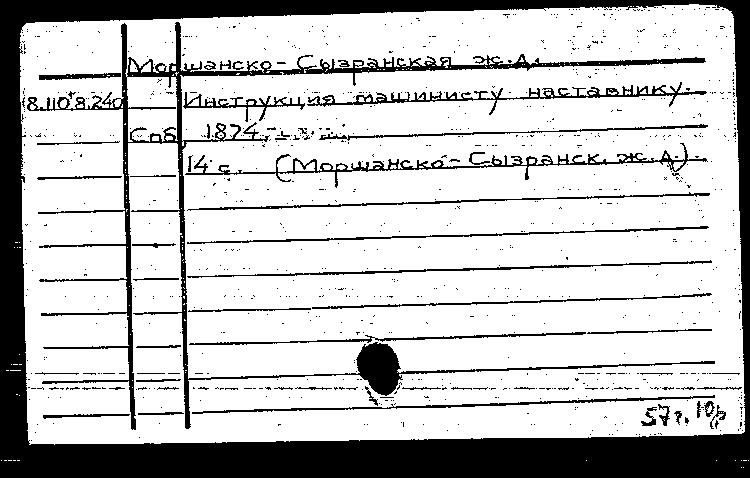 Моршанско-Сызранская ж.д.
18.110*8.240 Инструкция машинисту наставнику.
Спб, 1874,
14 с. (Моршанско-Сызранск. ж.д.).
57г. 10р